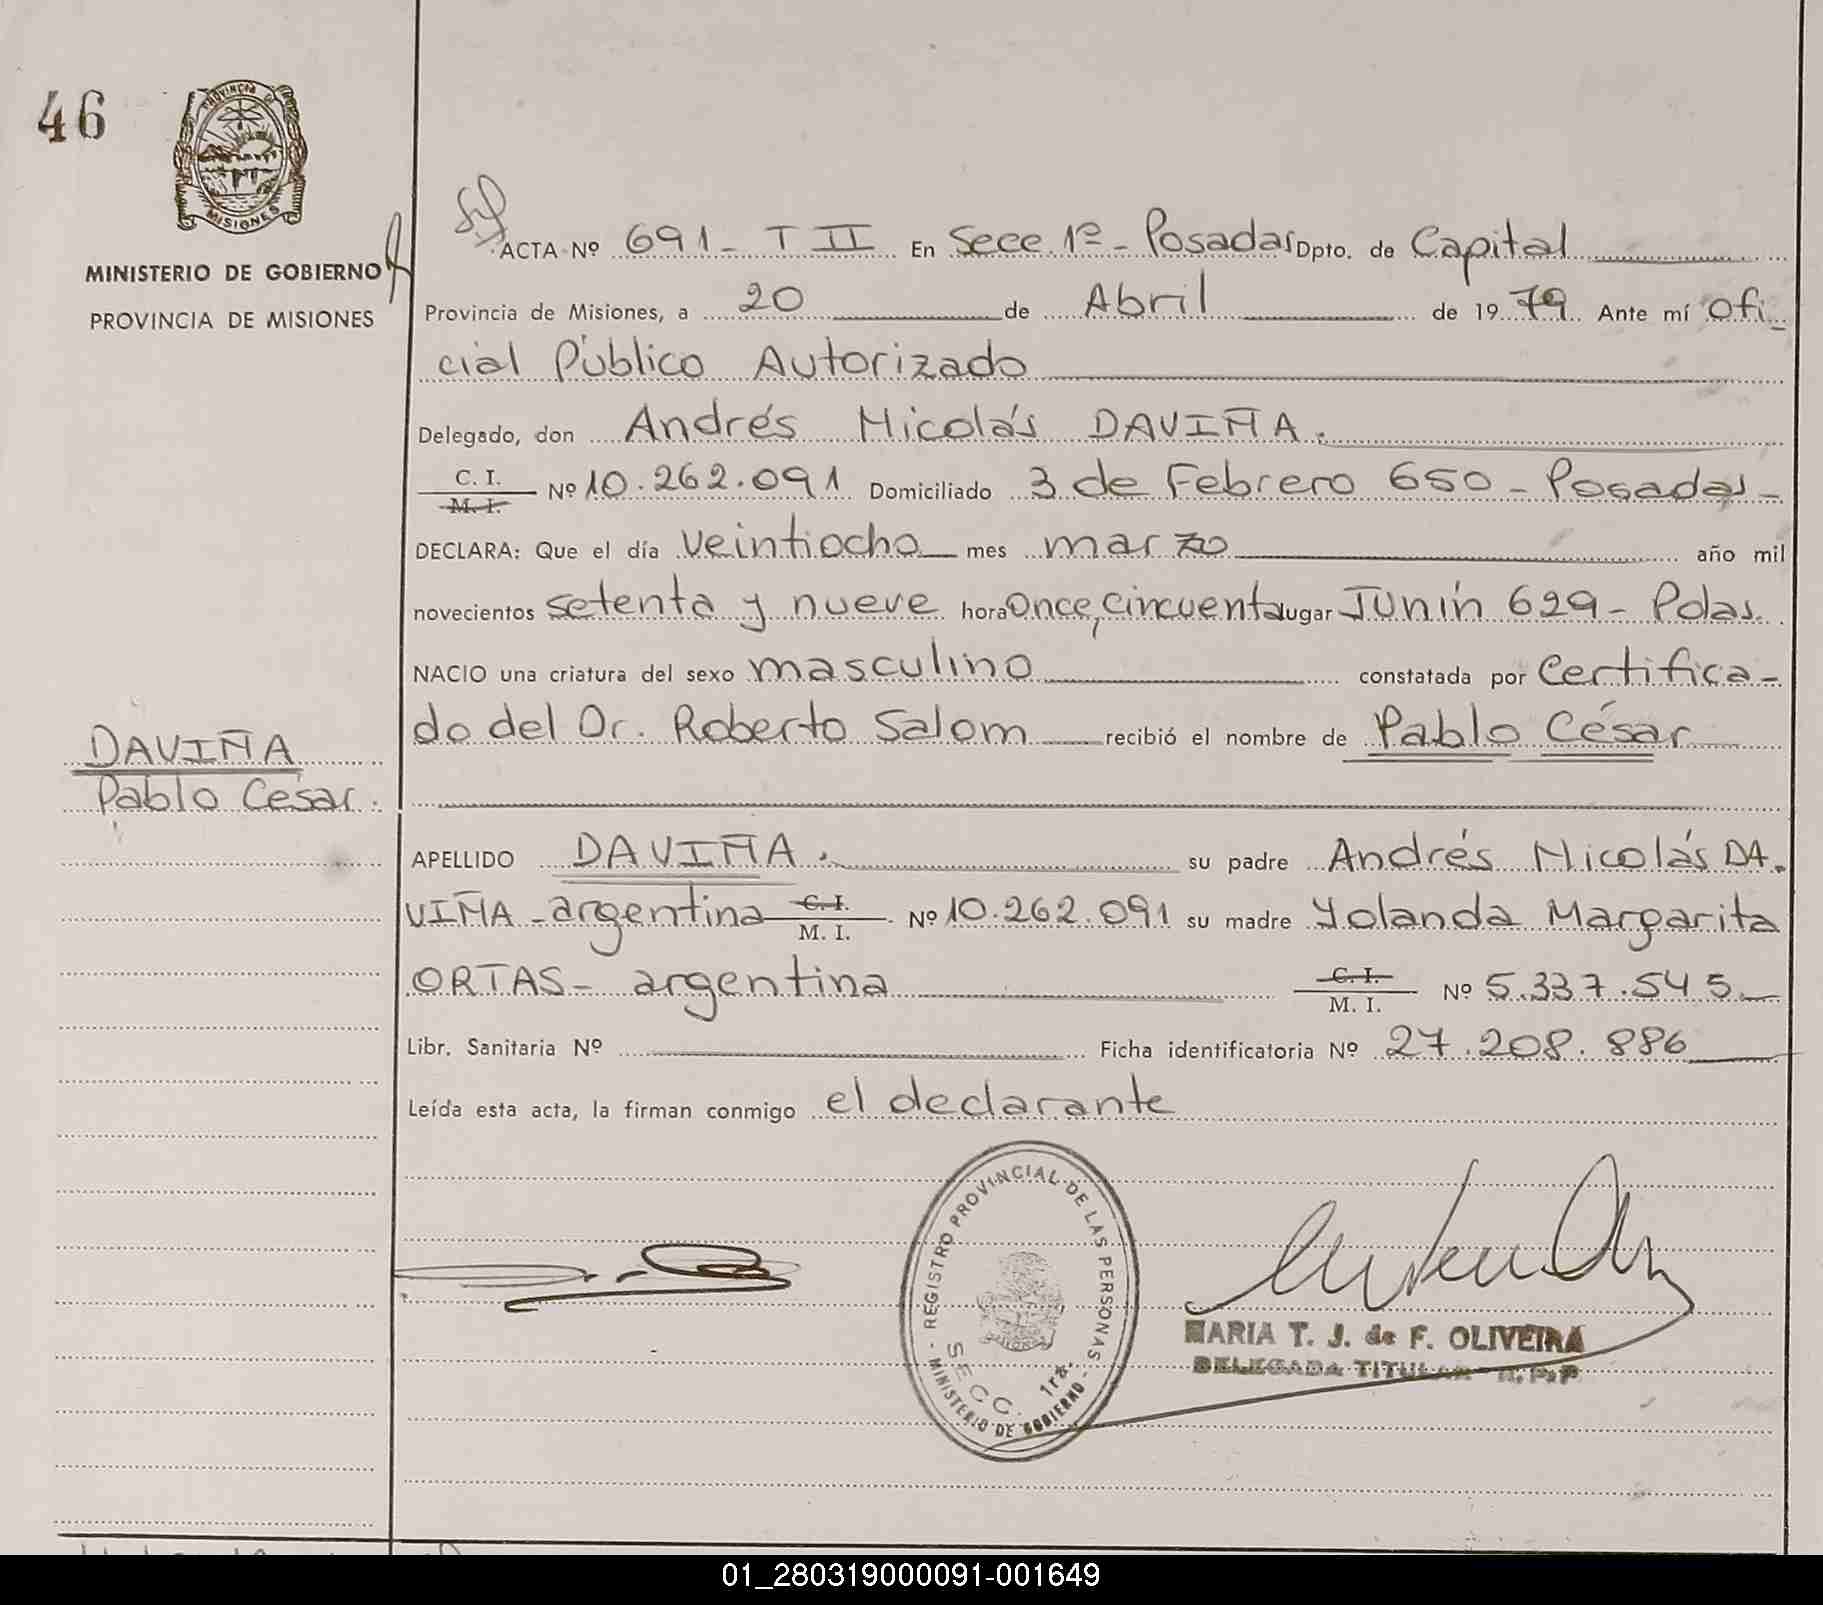 46
PROVINCIA DE
MISIONES
MINISTERIO DE GOBIERNO
PROVINCIA DE MISIONES
ACTA Nº 691 - T II En Secc. 1ª - Posadas Dpto. de Capital
Provincia de Misiones, a 20 de Abril de 1979 Ante mí Ofi-
cial Público Autorizado
Delegado, don Andrés Nicolás DAVIÑA.
C. I.
M. I. Nº 10.262.091 Domiciliado 3 de Febrero 650 - Posadas -
DECLARA: Que el día veintiocho mes marzo año mil
novecientos setenta y nueve hora Once, cincuenta lugar Junín 629 - Pdas.
NACIO una criatura del sexo masculino constatada por Certifica-
do del Dr. Roberto Salom recibió el nombre de Pablo César
DAVIÑA
Pablo César.
APELLIDO DAVIÑA. su padre Andrés Nicolás DA-
VIÑA - argentina C. I. M. I. Nº 10.262.091 su madre Yolanda Margarita
ORTAS - argentina C. I. M. I. Nº 5.337.545
Libr. Sanitaria Nº Ficha identificatoria Nº 27.208.886
Leída esta acta, la firman conmigo el declarante
- REGISTRO PROVINCIAL DE LAS PERSONAS -
SECC. 1ra.
MINISTERIO DE GOBIERNO
MARIA T. J. de F. OLIVEIRA
DELEGADA TITULAR R. P. P.
01_280319000091-001649